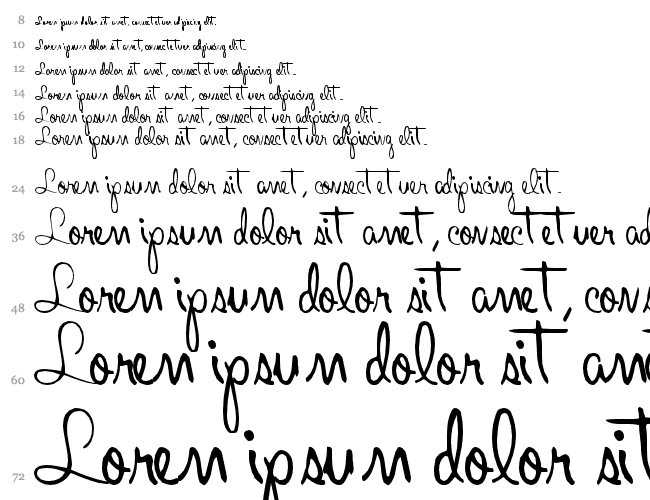 8 Lorem ipsum dolor sit amet, consectetuer adipiscing elit.
10 Lorem ipsum dolor sit amet, consectetuer adipiscing elit.
12 Lorem ipsum dolor sit amet, consectetuer adipiscing elit.
14 Lorem ipsum dolor sit amet, consectetuer adipiscing elit.
16 Lorem ipsum dolor sit amet, consectetuer adipiscing elit.
18 Lorem ipsum dolor sit amet, consectetuer adipiscing elit.
24 Lorem ipsum dolor sit amet, consectetuer adipiscing elit.
36 Lorem ipsum dolor sit amet, consectetuer ad
48 Lorem ipsum dolor sit amet, cons
60 Lorem ipsum dolor sit am
72 Lorem ipsum dolor sit